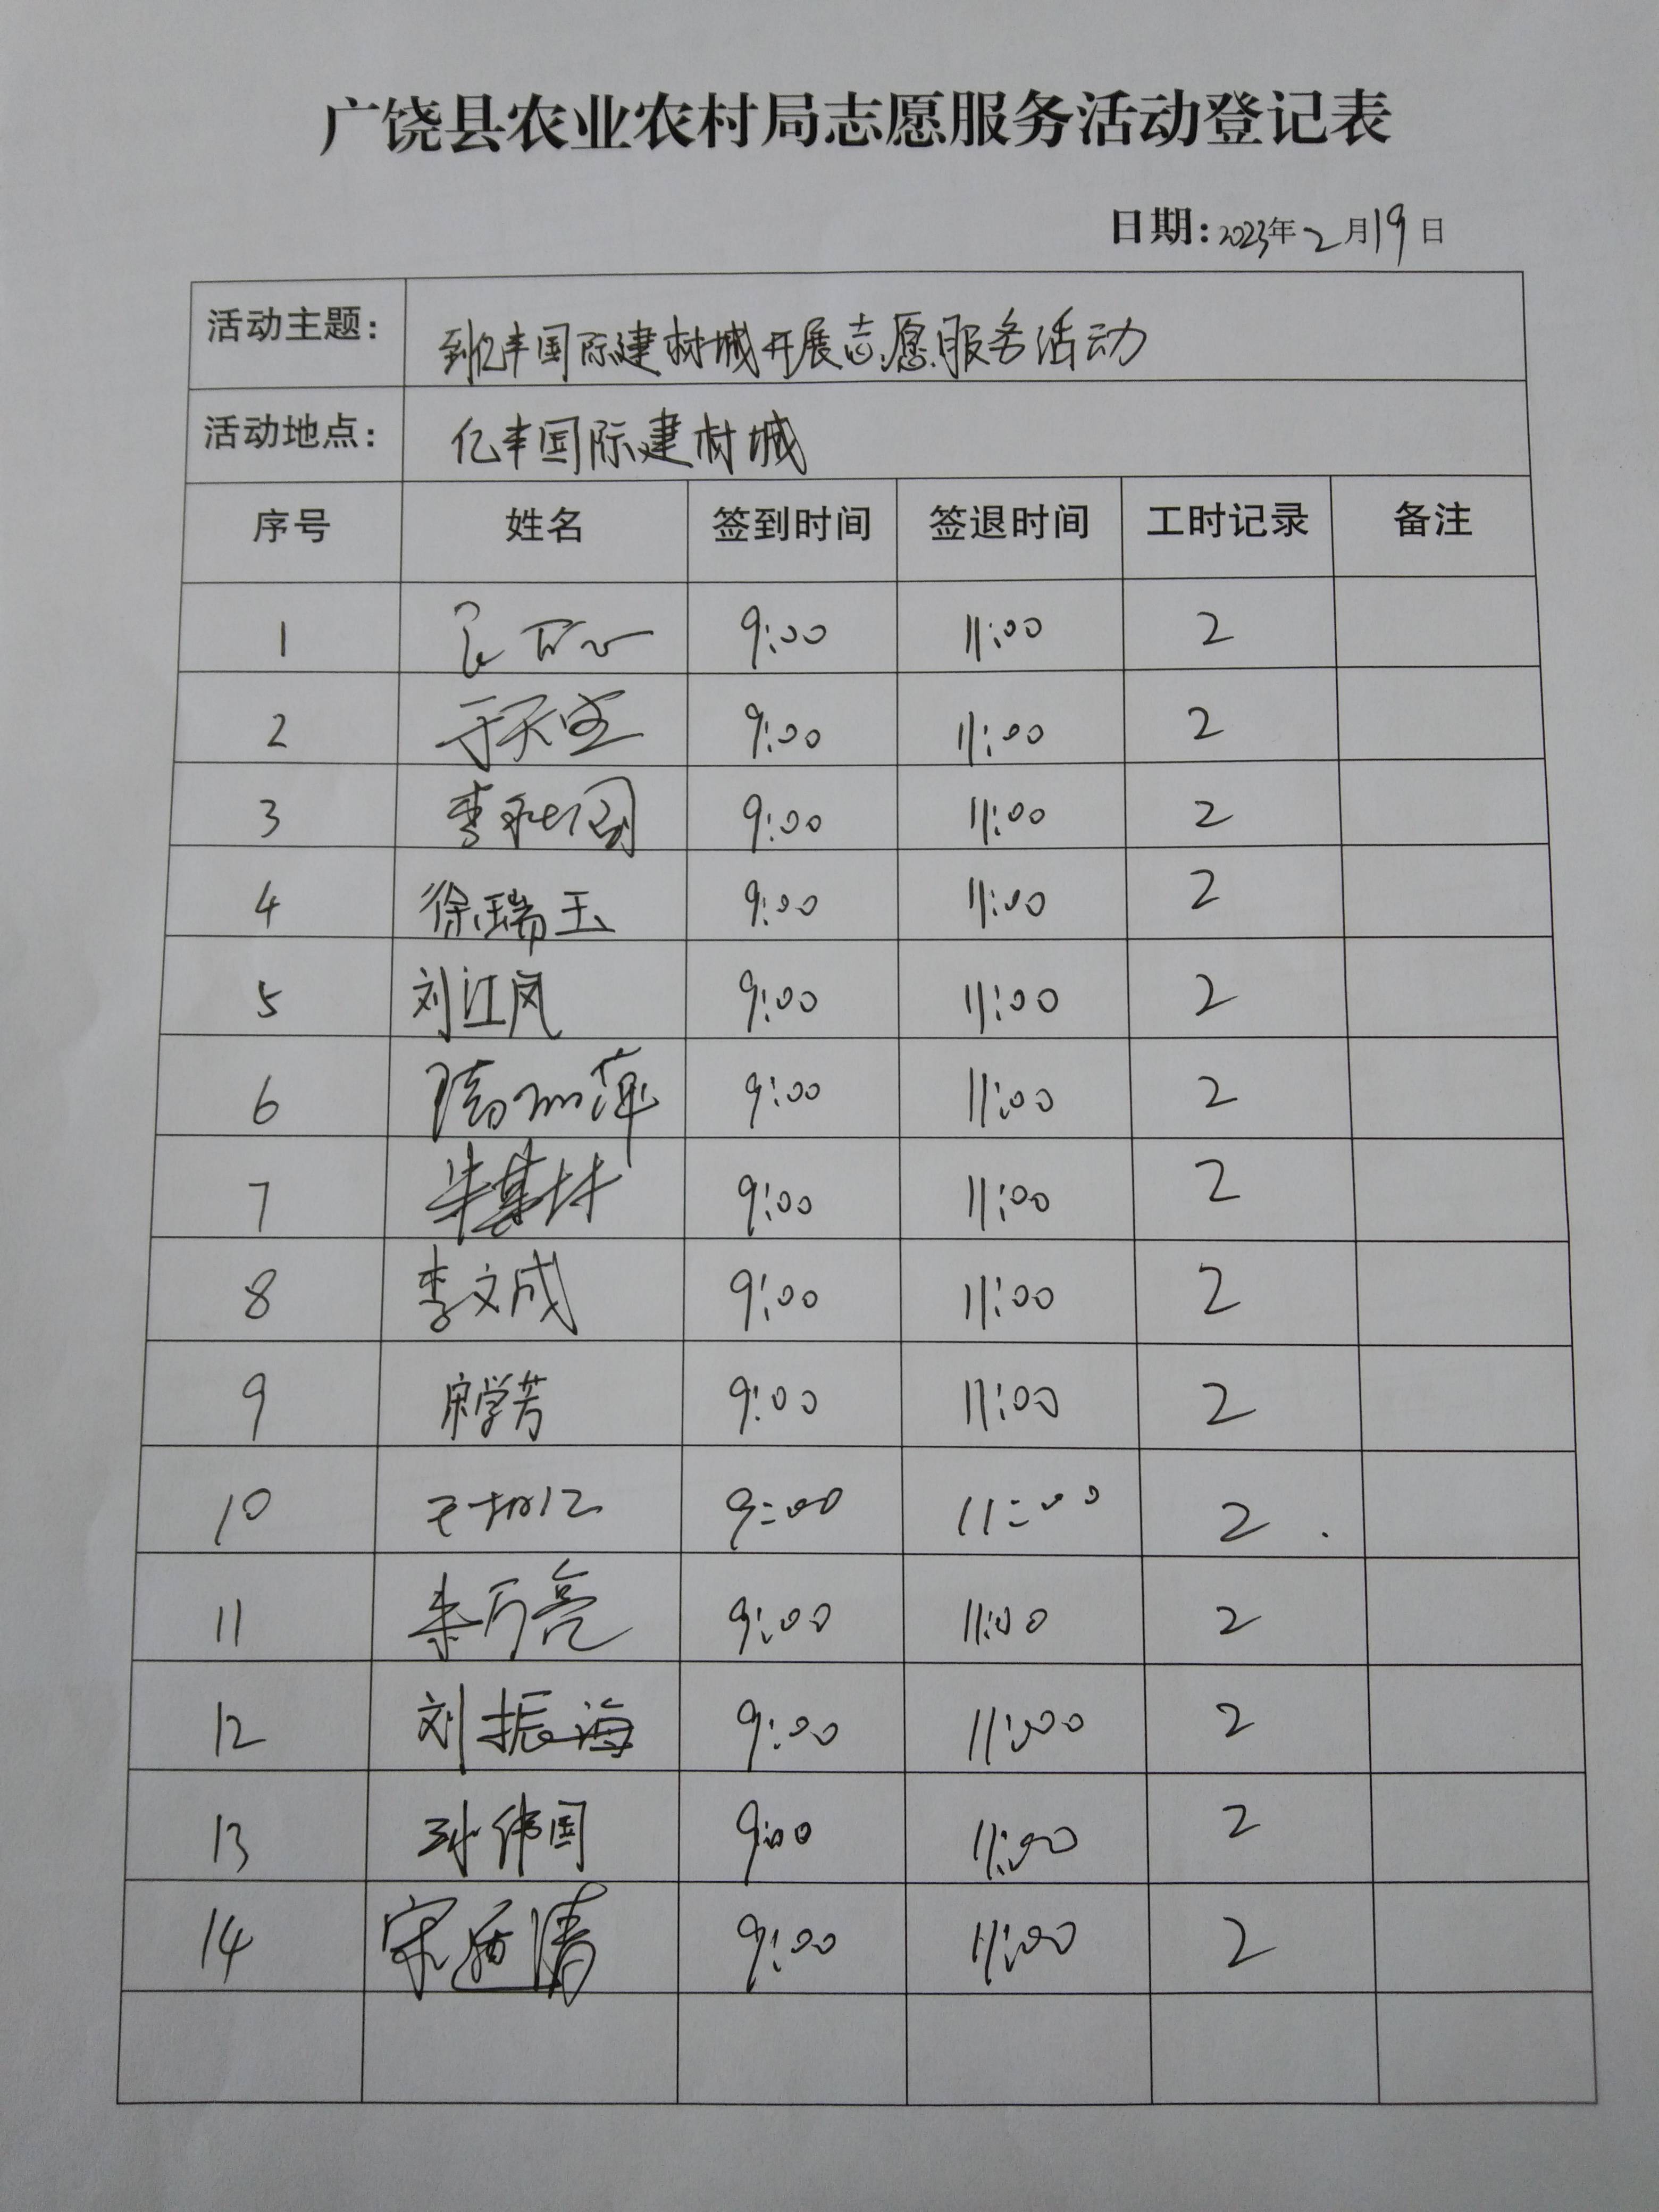 广饶县农业农村局志愿服务活动登记表
日期:2023年2月19日
活动主题: 到亿丰国际建材城开展志愿服务活动
活动地点: 亿丰国际建材城
序号 姓名 签到时间 签退时间 工时记录 备注
1 9:00 11:00 2
2 于天宝 9:00 11:00 2
3 李 9:00 11:00 2
4 徐瑞玉 9:00 11:00 2
5 刘江凤 9:00 11:00 2
6 隋丽萍 9:00 11:00 2
7 朱基林 9:00 11:00 2
8 李文成 9:00 11:00 2
9 宋学芳 9:00 11:00 2
10 9:00 11:00 2
11 万亮 9:00 11:00 2
12 刘振海 9:00 11:00 2
13 孙伟国 9:00 11:00 2
14 宋 清 9:00 11:00 2